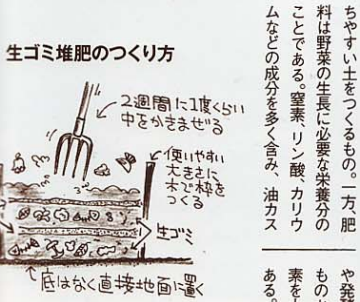 ちやすい土をつくるもの。一方、肥
料は野菜の生長に必要な栄養分の
ことである。窒素、リン酸、カリウ
ムなどの成分を多く含み、油カス
や発
もの
素を
ある。
生ゴミ堆肥のつくり方
2週間に1度くらい
中をかきまぜる
使いやすい
大きさに
木で枠を
つくる
生ゴミ
底はなく直接地面に置く